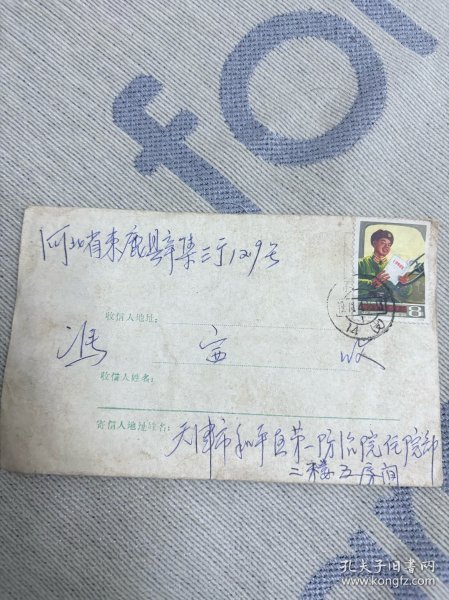 for
河北省束鹿县辛集三街129号
8
收信人地址:
冯宝收
收信人姓名:
寄信人地址姓名:
天津市和平区第一防治院住院部
三楼五房间
孔夫子旧书网
www.kongfz.com